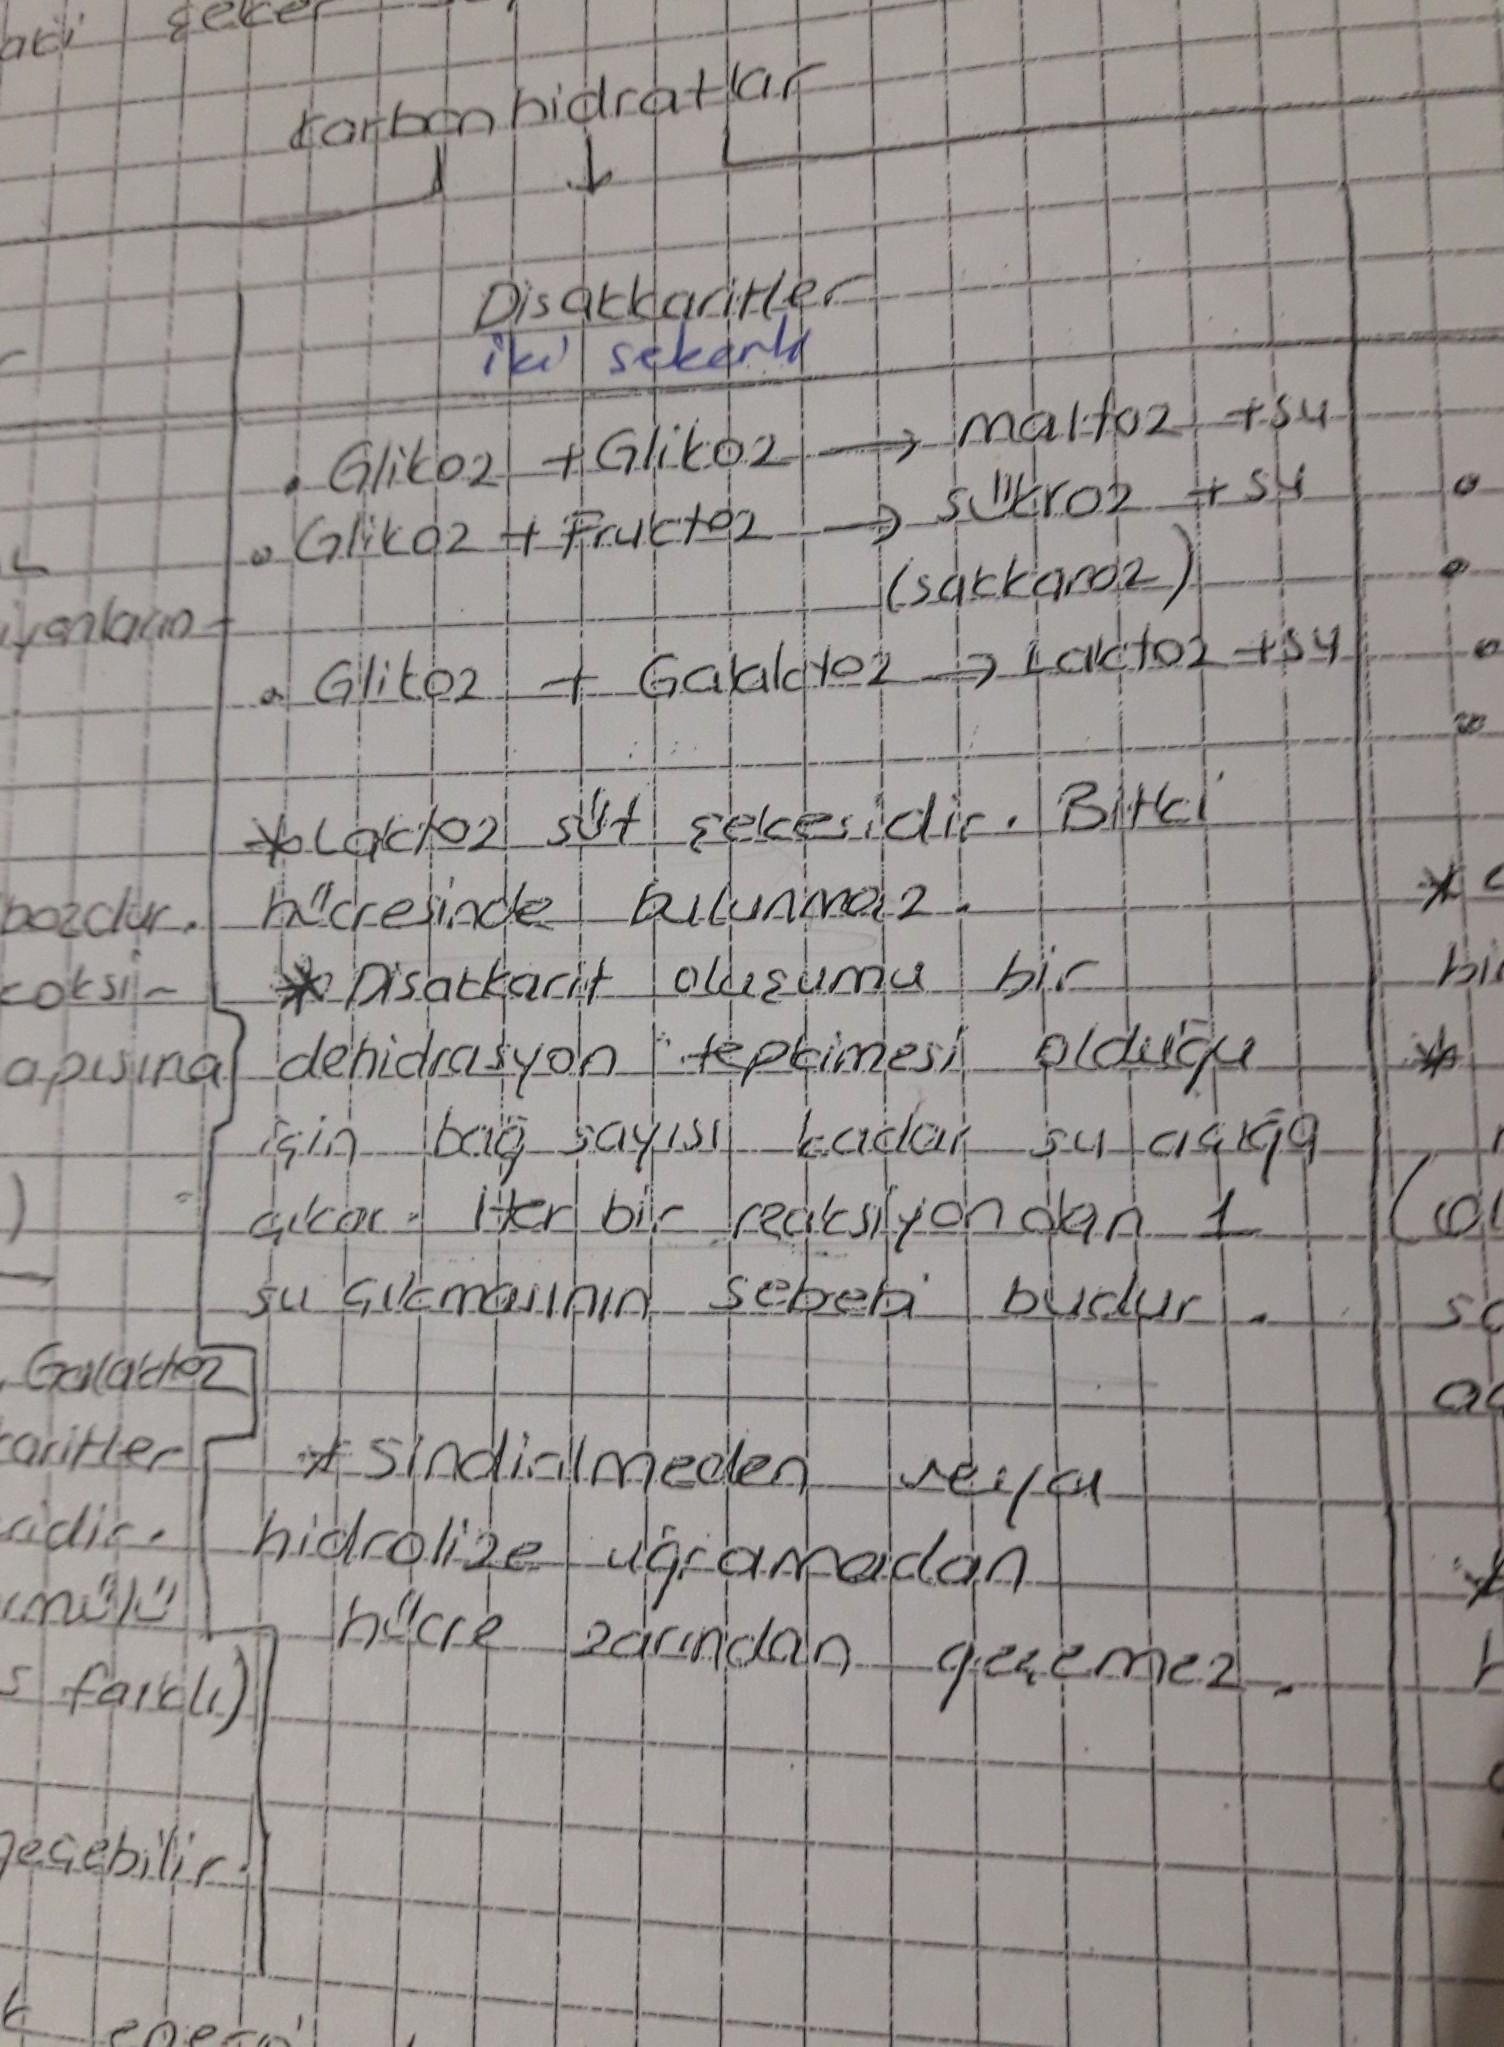 şeker
karbonhidratlar
Disakkaritler
iki şekerli
. Glikoz + Glikoz → maltoz + su
. Glikoz + Fruktoz → sükroz + su
(sakkaroz)
. Glikoz + Galaktoz → Laktoz + su
iyonların
* Laktoz süt şekeridir. Bitki
bozdur. hücresinde bulunmaz.
* Disakkarit oluşumu bir
apısına dehidrasyon tepkimesi olduğu
için bağ sayısı kadar su açığa
) çıkar. Her bir reaksiyondan 1
su çıkmasının sebebi budur.
Galaktoz
karitler * Sindirilmeden veya
ridir. hidrolize uğramadan
hücre zarından geçemez.
s farklı)
geçebilir.